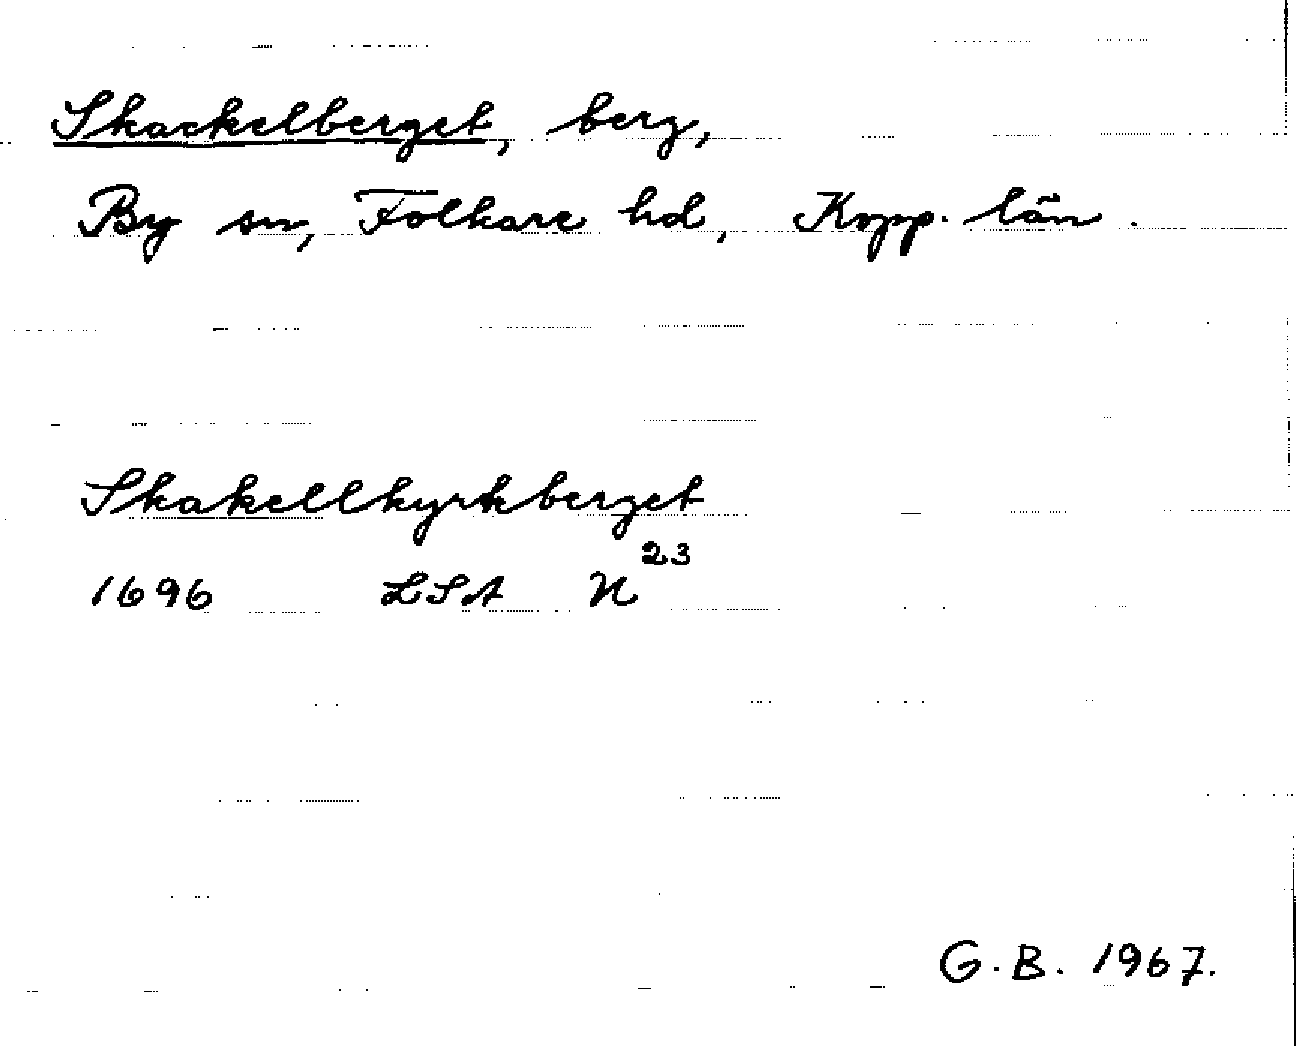 Skackelberget, berg,
By sn, Folkare hd, Kopp. län.
Skakellkyrkberget
1696 LSA N 23
G.B. 1967.